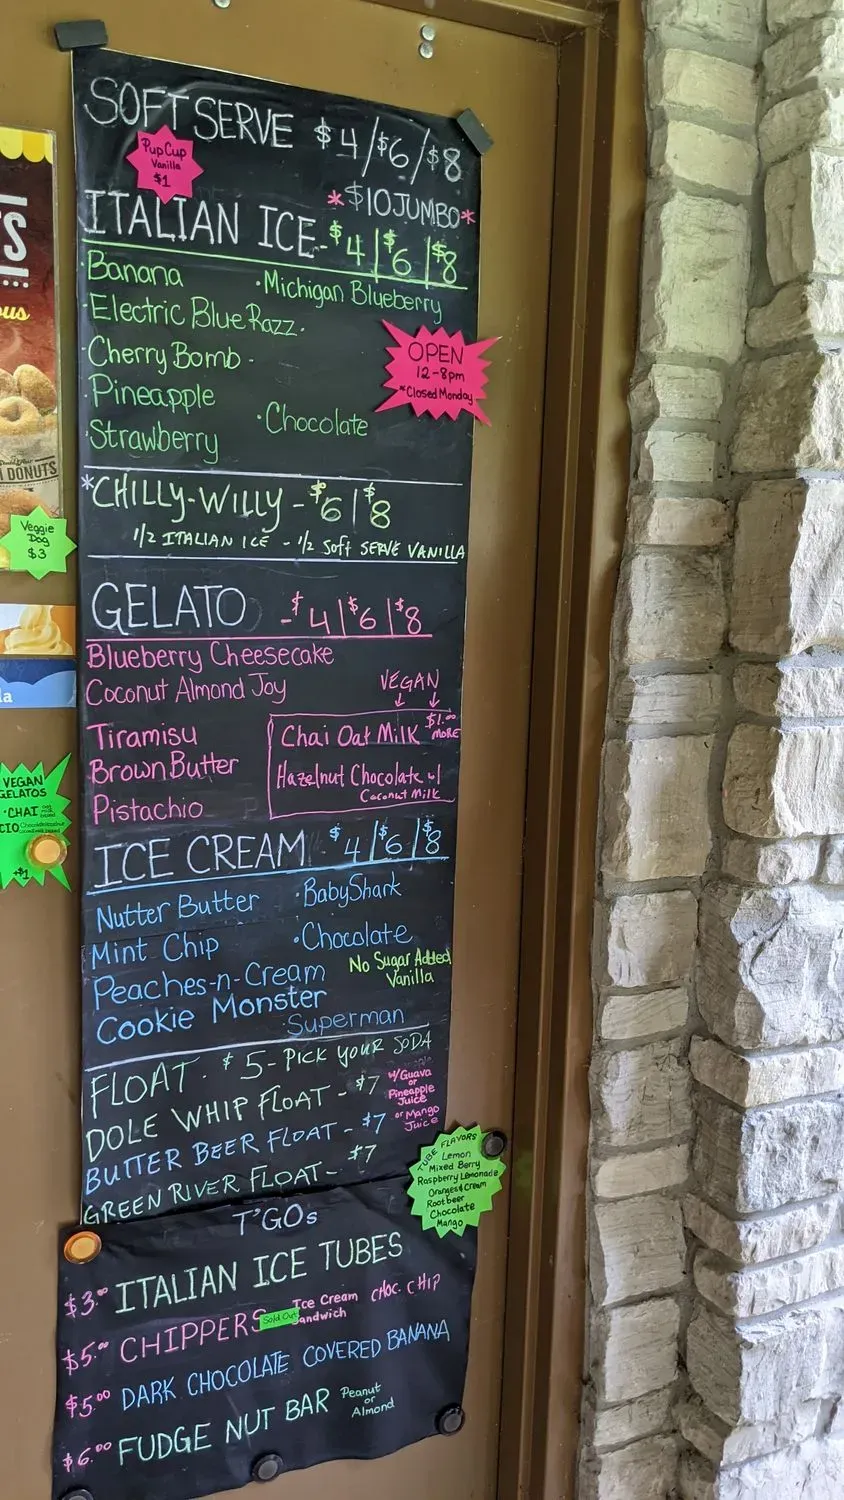 SOFT SERVE $4/$6/$8
Pup Cup
Vanilla
$1
*$10 JUMBO*
ITALIAN ICE - $4|$6|$8
Banana
•Michigan Blueberry
Electric Blue Razz.
Cherry Bomb
Pineapple
Strawberry
•Chocolate
OPEN
12-8pm
*Closed Monday
*CHILLY-WILLY - $6|$8
1/2 ITALIAN ICE - 1/2 Soft SERVE VANILLA
Veggie
Dog
$3
GELATO - $4|$6|$8
Blueberry Cheesecake
Coconut Almond Joy
VEGAN
Tiramisu
Brown Butter
Pistachio
Chai Oat Milk $1.00
MORE
Hazelnut Chocolate w/
Coconut Milk
VEGAN
GELATOS
•CHAI
CIO
+$1
ICE CREAM - $4|$6|$8
Nutter Butter
•BabyShark
Mint Chip
•Chocolate
Peaches-n-Cream
No Sugar Added
Vanilla
Cookie Monster
Superman
FLOAT. $5 - PICK YOUR SODA
DOLE WHIP FLOAT - $7
w/Guava
or
Pineapple
Juice
or Mango
Juice
BUTTER BEER FLOAT - $7
GREEN RIVER FLOAT - $7
TUBE FLAVORS
Lemon
Mixed Berry
Raspberry Lemonade
Oranges & Cream
Rootbeer
Chocolate
Mango
T'GOs
$3.00 ITALIAN ICE TUBES
$5.00 CHIPPERS Sold Out Ice Cream
Sandwich CHOC. CHIP
$5.00 DARK CHOCOLATE COVERED BANANA
$6.00 FUDGE NUT BAR Peanut
or
Almond
S
ous
DONUTS
la